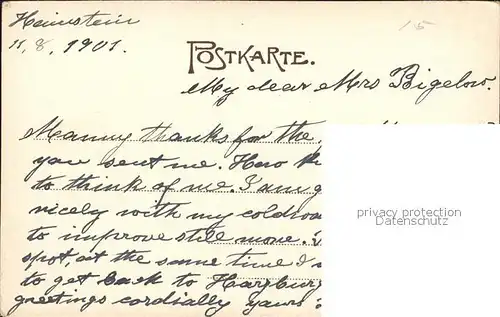 Hainstein
11, 8, 1901.
15
POSTKARTE.
My dear Mrs Bigelow.
Manny thanks for the
you sent me. How
to think of me. I am
nicely with my
to improve still more.
spot, at the same time I
to get back to Harzburg
greetings cordially yours
privacy protection
Dustkarton.com